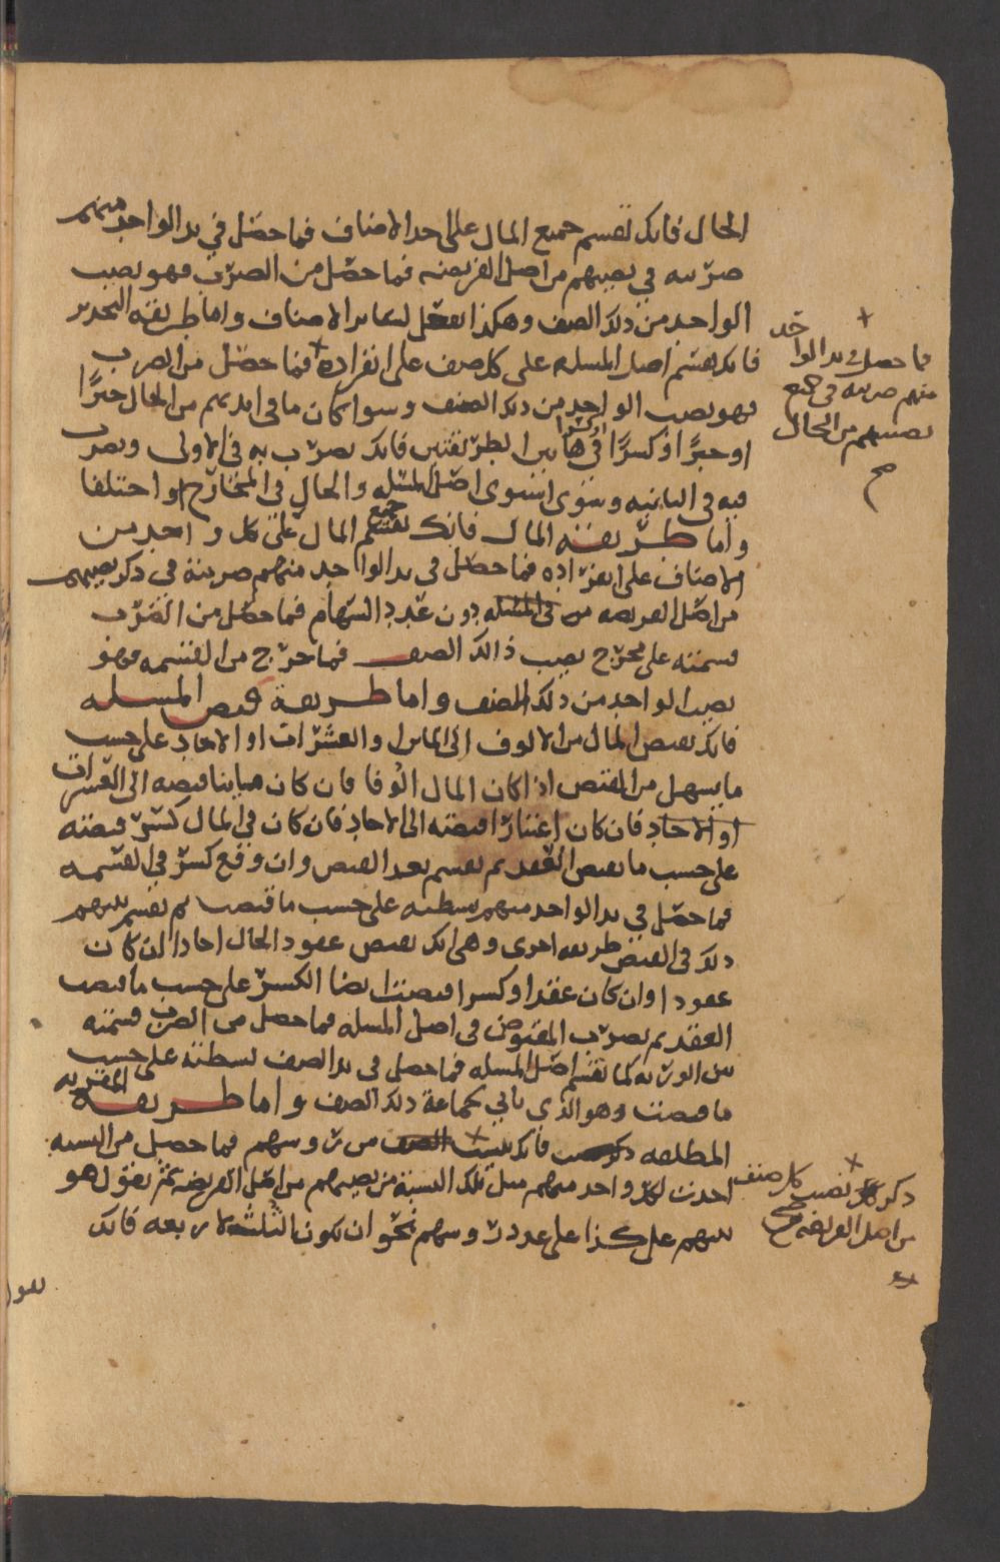 الحال فانك تقسم جميع المال على احد الاصناف فما حصل في يد الواحد منهم
ضربته في نصيبهم من اصل الفريضه فما حصل من الضرب فهو نصيب
الواحد من ذلك الصنف وهكذا تفعل لسائر الاصناف واما طريقه التحدير
فانك تقسم اصل المسله على كل صنف على انفراده فما حصل من الضرب
فهو نصيب الواحد من ذلك الصنف وسوا كان ما في ايديهم من الحال جبرًا
او جبرًا او كسرًا بين الطريقتين فانك تضرب به في الاولى وتضرب
فيه في الثانيه وسوى استوى اصل المسله والحال في المخارج او اختلفا
واما طريقة المال فانك تقسم جميع المال على كل واحد من
الاصناف على انفراده فما حصل في يد الواحد منهم ضربته في ذكر نصيبهم
من اصل الفريضه في المسله دون عدد السهام فما حصل من الضرب
قسمته على مخرج نصيب ذالك الصنف فما خرج من القسمه فهو
نصيب الواحد من ذلك الصنف واما طريقة قبص المسله
فانك تقبص المال من الالوف الى المايين والعشرات او الاحاد على حسب
ما يسهل من القبص اذا كان المال الوفا فان كان مياينا قبصه الى العشرات
او الاحاد فان كان اعشارًا قبصته الى الاحاد فان كان في المال كسر قبصته
على حسب ما تقبص العقد ثم تقسم بعد القبص وان وقع كسر في القسمه
فما حصل في يد الواحد منهم بسطته على حسب ما قبصت ثم تقسم بينهم
ذلك في القبص طريقه اخرى وهي انك تقبص عقود الحال احادا ان كان
عقودا وان كان عقدا وكسرا قبصت ايضا الكسر على حسب ما قبصت
العقد ثم تضرب المقبوص في اصل المسله فما حصل من الضرب قسمته
بين الورثه كما تقسم اصل المسله فما حصل في يد الصنف بسطته على حسب
ما قبصت وهو الذي ياتي بجماعة ذلك الصنف واما طريقة القريه
المطلقه فانك تنسب من رؤسهم فما حصل من النسبه
اخذت لكل واحد منهم مثل تلك النسبة من نصيبهم من اصل الفريضه ثم تقول هو
بينهم على كذا على عدد رؤسهم نحو ان تكون الثلثه لاربعه فانك
فما حصل في يد الواحد
منهم ضربته في جميع
نصيبهم من الحال
صح
ذكر نصيب كل صنف
من اصل الفريضه صح
تقول